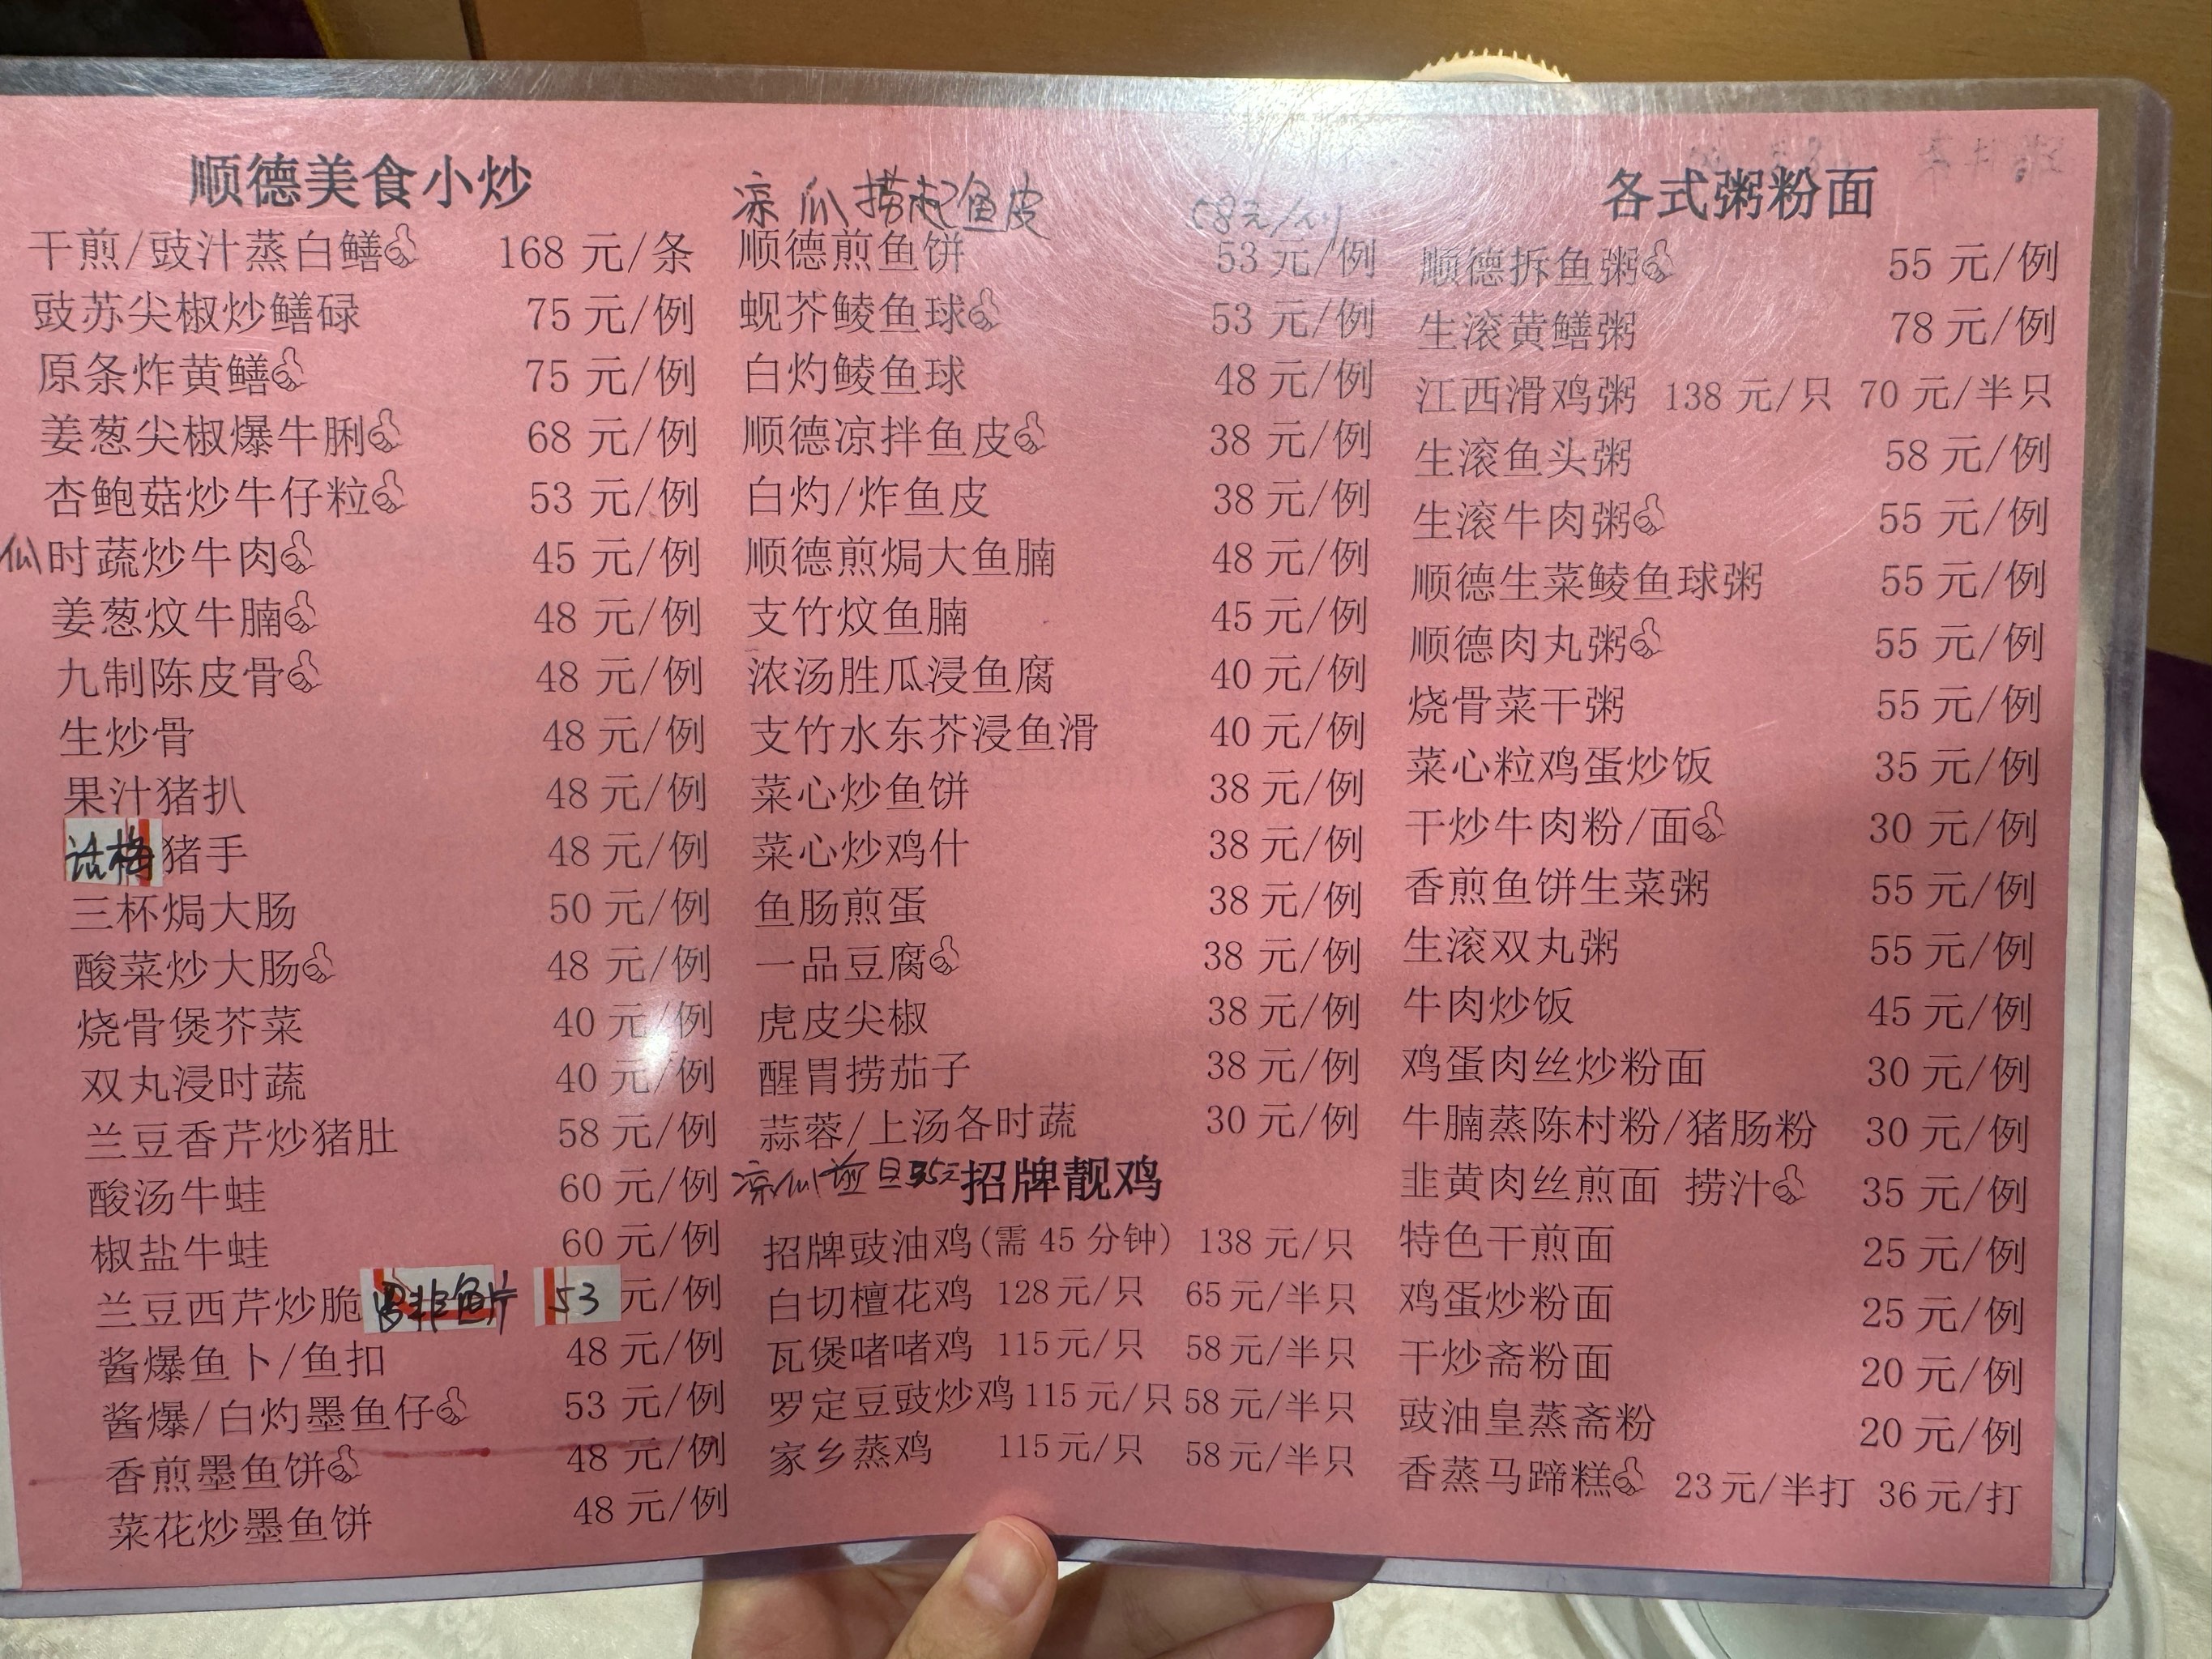 顺德美食小炒
干煎/豉汁蒸白鳝 168 元/条
豉苏尖椒炒鳝碌 75 元/例
原条炸黄鳝 75 元/例
姜葱尖椒爆牛脷 68 元/例
杏鲍菇炒牛仔粒 53 元/例
瓜 时蔬炒牛肉 45 元/例
姜葱炆牛腩 48 元/例
九制陈皮骨 48 元/例
生炒骨 48 元/例
果汁猪扒 48 元/例
话梅猪手 48 元/例
三杯焗大肠 50 元/例
酸菜炒大肠 48 元/例
烧骨煲芥菜 40 元/例
双丸浸时蔬 40 元/例
兰豆香芹炒猪肚 58 元/例
酸汤牛蛙 60 元/例
椒盐牛蛙 60 元/例
兰豆西芹炒脆 53 元/例
酱爆鱼卜/鱼扣 48 元/例
酱爆/白灼墨鱼仔 53 元/例
香煎墨鱼饼 48 元/例
菜花炒墨鱼饼 48 元/例
凉瓜捞起鱼皮 58元/例
顺德煎鱼饼 53 元/例
蚬芥鲮鱼球 53 元/例
白灼鲮鱼球 48 元/例
顺德凉拌鱼皮 38 元/例
白灼/炸鱼皮 38 元/例
顺德煎焗大鱼腩 48 元/例
支竹炆鱼腩 45 元/例
浓汤胜瓜浸鱼腐 40 元/例
支竹水东芥浸鱼滑 40 元/例
菜心炒鱼饼 38 元/例
菜心炒鸡什 38 元/例
鱼肠煎蛋 38 元/例
一品豆腐 38 元/例
虎皮尖椒 38 元/例
醒胃捞茄子 38 元/例
蒜蓉/上汤各时蔬 30 元/例
凉瓜 35元
招牌靓鸡
招牌豉油鸡(需 45 分钟) 138 元/只
白切檀花鸡 128 元/只 65 元/半只
瓦煲啫啫鸡 115 元/只 58 元/半只
罗定豆豉炒鸡 115 元/只 58 元/半只
家乡蒸鸡 115 元/只 58 元/半只
各式粥粉面
顺德拆鱼粥 55 元/例
生滚黄鳝粥 78 元/例
江西滑鸡粥 138 元/只 70 元/半只
生滚鱼头粥 58 元/例
生滚牛肉粥 55 元/例
顺德生菜鲮鱼球粥 55 元/例
顺德肉丸粥 55 元/例
烧骨菜干粥 55 元/例
菜心粒鸡蛋炒饭 35 元/例
干炒牛肉粉/面 30 元/例
香煎鱼饼生菜粥 55 元/例
生滚双丸粥 55 元/例
牛肉炒饭 45 元/例
鸡蛋肉丝炒粉面 30 元/例
牛腩蒸陈村粉/猪肠粉 30 元/例
韭黄肉丝煎面 捞汁 35 元/例
特色干煎面 25 元/例
鸡蛋炒粉面 25 元/例
干炒斋粉面 20 元/例
豉油皇蒸斋粉 20 元/例
香蒸马蹄糕 23 元/半打 36 元/打